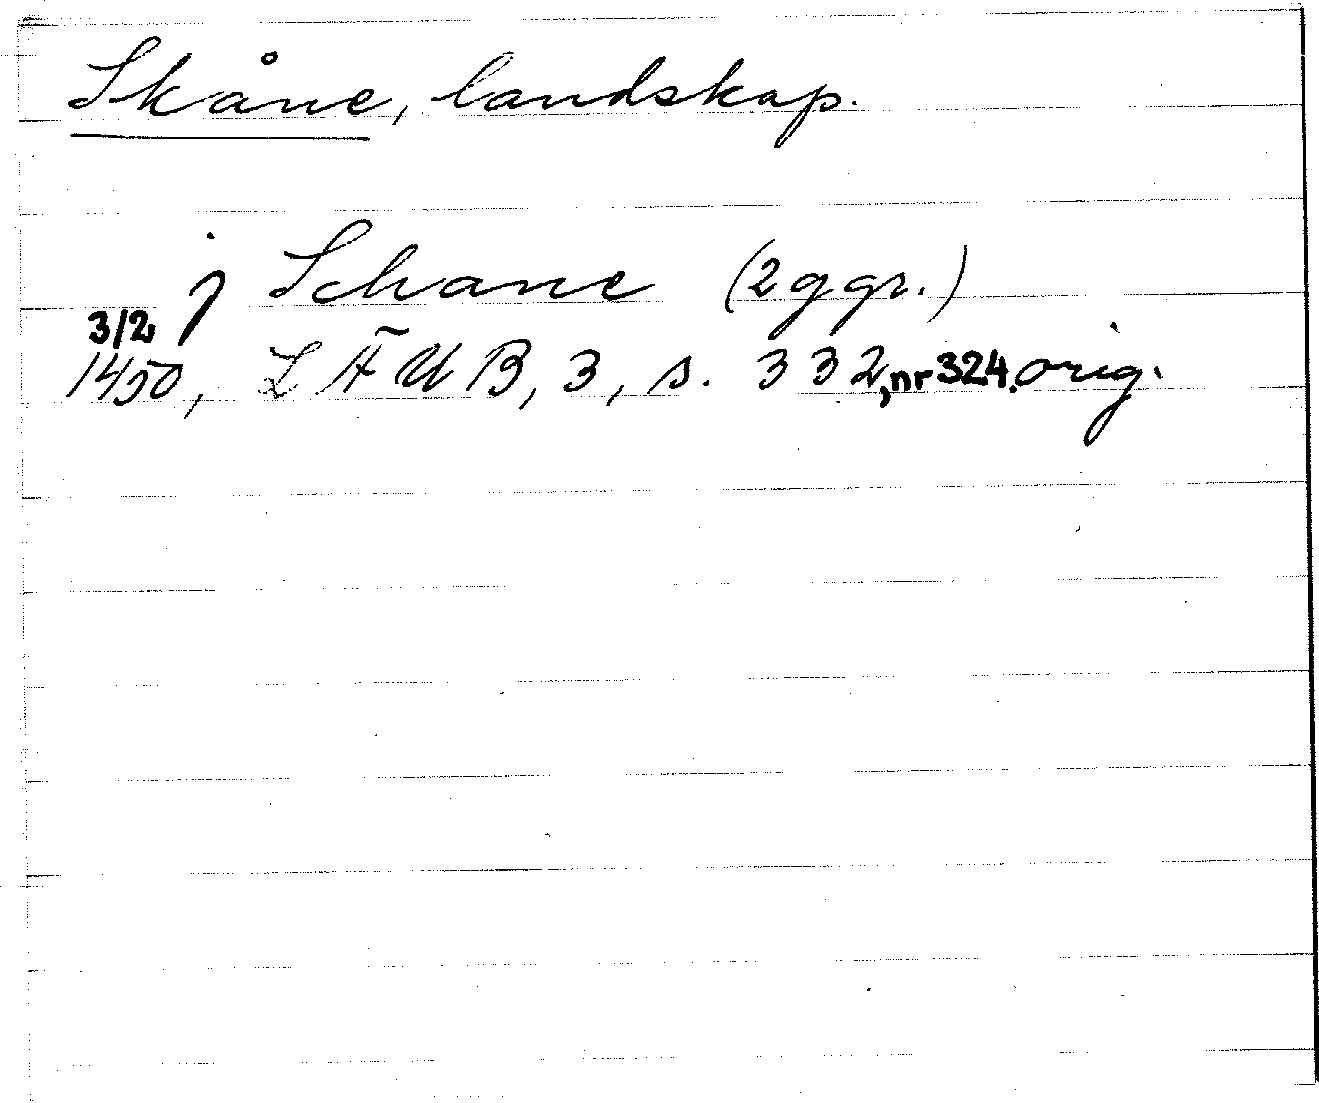 Skåne, landskap.
j Schane (2 ggr.)
3/2
1450, LÄUB, 3, s. 332, nr 324. orig.